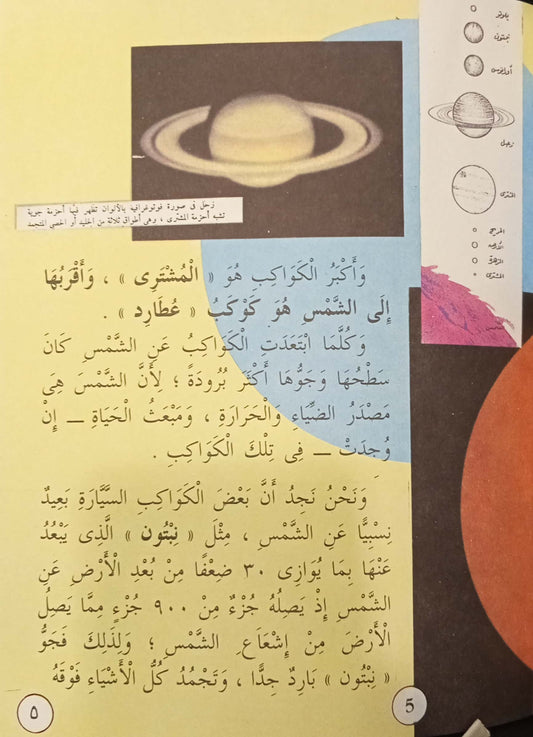 بلوتو
نبتون
أورانوس
زحل
المشترى
المريخ
الأرض
الزهرة
المشترى
الشمس
زحل فى صورة فوتوغرافية بالألوان تظهر فيها أحزمة جوية
تشبه أحزمة المشترى ، وهى أطواق ثلاثة من الجليد أو الحصى المتجمد
وَأَكْبَرُ الْكَوَاكِبِ هُوَ « الْمُشْتَرِى » ، وَأَقْرَبُهَا
إِلَى الشَّمْسِ هُوَ كَوْكَبُ « عُطَارِد » .
وَكُلَّمَا ابْتَعَدَتِ الْكَوَاكِبُ عَنِ الشَّمْسِ كَانَ
سَطْحُهَا وَجَوُّهَا أَكْثَرَ بُرُودَةً ؛ لِأَنَّ الشَّمْسَ هِىَ
مَصْدَرُ الضِّيَاءِ وَالْحَرَارَةِ ، وَمَبْعَثُ الْحَيَاةِ — إِنْ
وُجِدَتْ — فِى تِلْكَ الْكَوَاكِبِ .
وَنَحْنُ نَجِدُ أَنَّ بَعْضَ الْكَوَاكِبِ السَّيَّارَةِ بَعِيدٌ
نِسْبِيًّا عَنِ الشَّمْسِ ، مِثْلَ « نِبْتُون » الَّذِى يَبْعُدُ
عَنْهَا بِمَا يُوَازِى ٣٠ ضِعْفًا مِنْ بُعْدِ الْأَرْضِ عَنِ
الشَّمْسِ إِذْ يَصِلُهُ جُزْءٌ مِنْ ٩٠٠ جُزْءٍ مِمَّا يَصِلُ
الْأَرْضَ مِنْ إِشْعَاعِ الشَّمْسِ ؛ وَلِذَلِكَ فَجَوُّ
« نِبْتُون » بَارِدٌ جِدًّا ، وَتَجْمُدُ كُلُّ الْأَشْيَاءِ فَوْقَهُ
5
٥